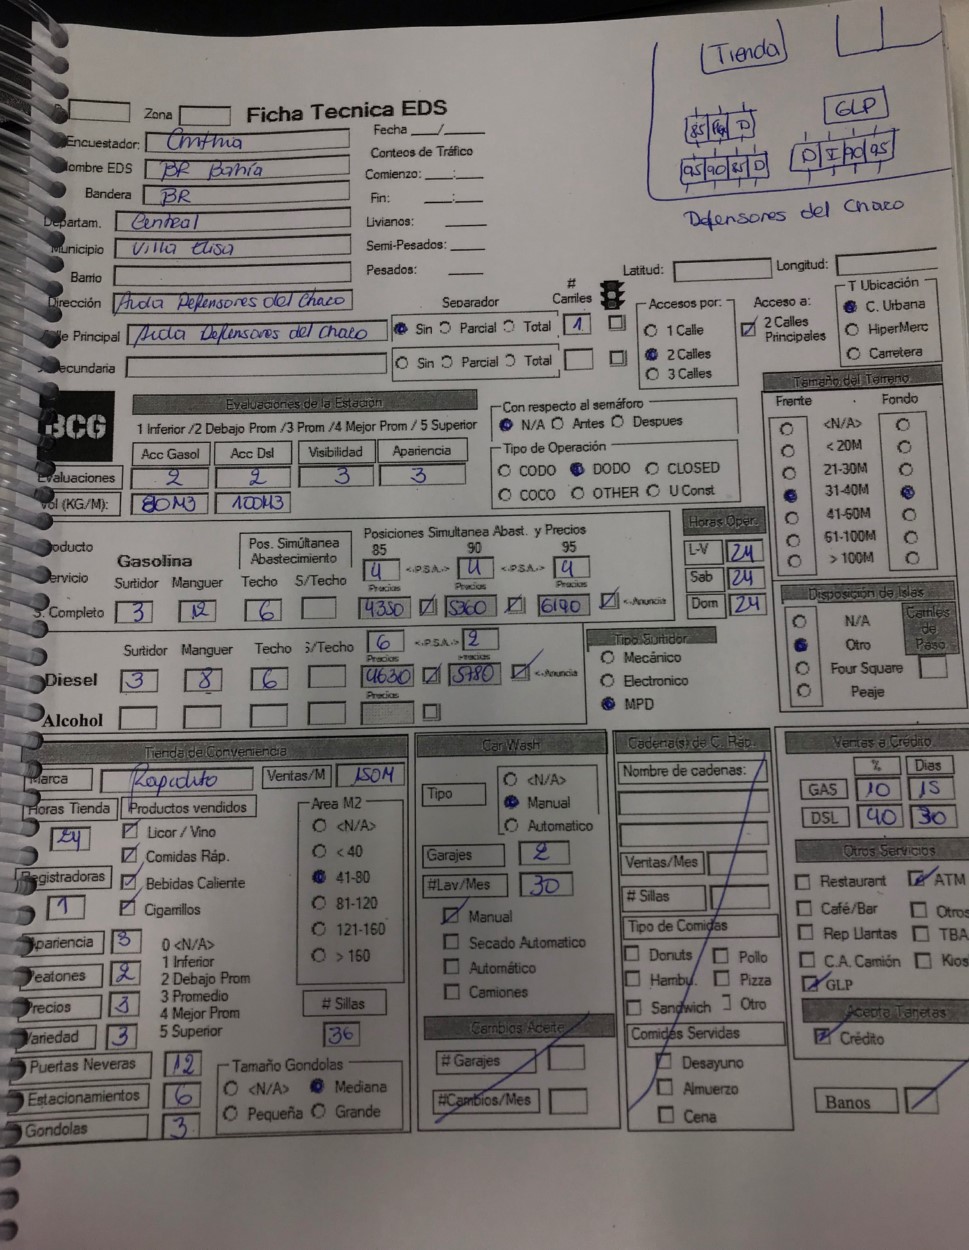 Tienda
GLP
85 D
95 90 85 D
D I 90 95
Defensores del Chaco
Zona
Ficha Tecnica EDS
Encuestador: Cinthia
Fecha ___/____
Conteos de Tráfico
Nombre EDS BR Bahía
Comienzo: ___:___
Bandera BR
Fin: ___:___
Departam. Central
Livianos: ____
Municipio Villa Elisa
Semi-Pesados: ____
Barrio
Pesados: ____
Latitud: Longitud:
Dirección Avda Defensores del Chaco
Separador
# Carriles
Accesos por:
Acceso a:
T Ubicación
Calle Principal Avda Defensores del Chaco
Sin Parcial Total 1
1 Calle
2 Calles
3 Calles
2 Calles Principales
C. Urbana
HiperMerc
Carretera
Secundaria
Sin Parcial Total
BCG
Evaluaciones de la Estación
1 Inferior /2 Debajo Prom /3 Prom /4 Mejor Prom / 5 Superior
Acc Gasol Acc Dsl Visibilidad Apariencia
Evaluaciones 2 2 3 3
Vol (KG/M): 80M3 100M3
Con respecto al semáforo
N/A Antes Despues
Tipo de Operación
CODO DODO CLOSED
COCO OTHER U Const
Tamaño del Terreno
Frente Fondo
<N/A>
< 20M
21-30M
31-40M
41-60M
61-100M
> 100M
Producto
Gasolina
Pos. Simúltanea Abastecimiento
Posiciones Simultanea Abast. y Precios
85 90 95
Servicio
Surtidor Manguer Techo S/Techo
4 <-P.S.A.-> 4 <-P.S.A.-> 4
Precios Precios Precios
S. Completo 3 12 6 4350 5360 6190 <-Anuncia
Horas Oper.
L-V 24
Sab 24
Dom 24
Disposición de Islas
N/A
Otro
Four Square
Peaje
Carriles de Paso
Surtidor Manguer Techo S/Techo
6 <-P.S.A.-> 2
Precios Precios
Diesel 3 8 6 4630 5780 <-Anuncia
Precios
Alcohol
Tipo Surtidor
Mecánico
Electronico
MPD
Tienda de Conveniencia
Marca Rapidito Ventas/M 150M
Horas Tienda Productos vendidos
24
Licor / Vino
Comidas Ráp.
Registradoras
Bebidas Caliente
1
Cigarrillos
Area M2
<N/A>
< 40
41-80
81-120
121-160
> 160
Apariencia 3
Peatones 2
Precios 3
Variedad 3
0 <N/A>
1 Inferior
2 Debajo Prom
3 Promedio
4 Mejor Prom
5 Superior
# Sillas
36
Puertas Neveras 12
Estacionamientos 6
Gondolas 3
Tamaño Gondolas
<N/A> Mediana
Pequeña Grande
Car Wash
Tipo
<N/A>
Manual
Automatico
Garajes 2
#Lav/Mes 30
Manual
Secado Automatico
Automático
Camiones
Cambios Aceite
# Garajes
#Cambios/Mes
Cadena(s) de C. Ráp.
Nombre de cadenas:
Ventas/Mes
# Sillas
Tipo de Comidas
Donuts Pollo
Hambu. Pizza
Sandwich Otro
Comidas Servidas
Desayuno
Almuerzo
Cena
Ventas a Crédito
% Dias
GAS 10 15
DSL 40 30
Otros Servicios
Restaurant ATM
Café/Bar Otros
Rep Llantas TBA
C.A. Camión Kios
GLP
Acepta Tarjetas
Crédito
Banos